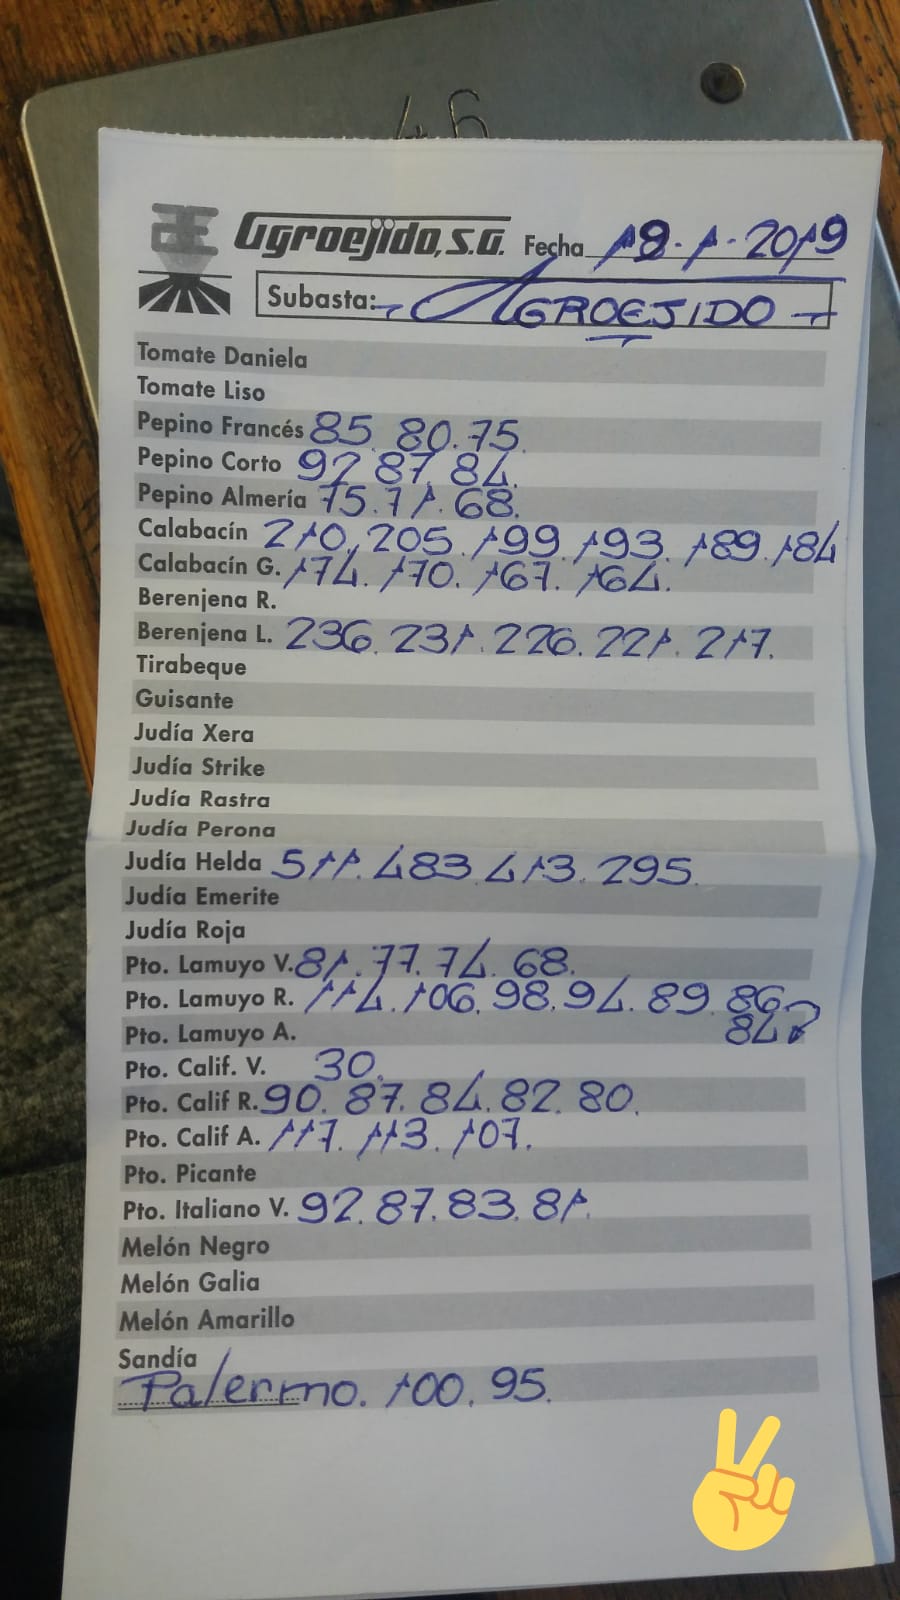 46
Agroejido, S.A. Fecha 18-1-2019
Subasta: AGROEJIDO
Tomate Daniela
Tomate Liso
Pepino Francés 85. 80. 75.
Pepino Corto 92. 87. 84.
Pepino Almería 75. 71. 68.
Calabacín 210. 205. 199. 193. 189. 184
Calabacín G. 174. 170. 167. 164.
Berenjena R.
Berenjena L. 236. 231. 226. 221. 217.
Tirabeque
Guisante
Judía Xera
Judía Strike
Judía Rastra
Judía Perona
Judía Helda 511. 483. 413. 295.
Judía Emerite
Judía Roja
Pto. Lamuyo V. 81. 77. 74. 68.
Pto. Lamuyo R. 114. 106. 98. 94. 89. 86.
84
Pto. Lamuyo A.
Pto. Calif. V. 30.
Pto. Calif R. 90. 87. 84. 82. 80.
Pto. Calif A. 117. 113. 107.
Pto. Picante
Pto. Italiano V. 92. 87. 83. 81.
Melón Negro
Melón Galia
Melón Amarillo
Sandía
Palermo. 100. 95.